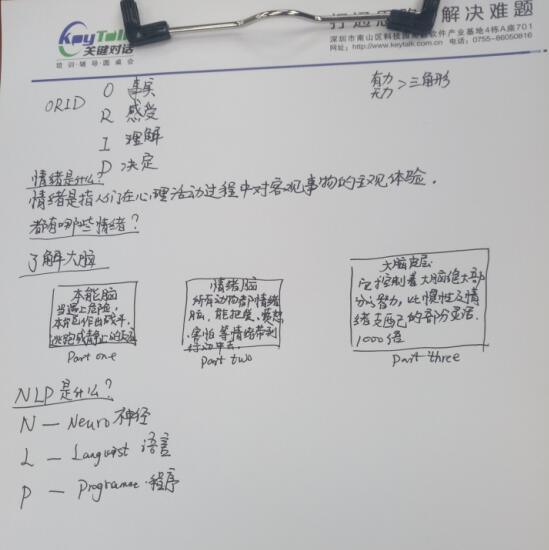 KeyTalk
关键对话
培训·辅导·圆桌会
解决难题
深圳市南山区科技园
软件产业基地4栋A座701
http://www.keytalk.com.cn 电话：0755-86050816
ORID
O 事实
R 感受
I 理解
D 决定
有力
无力 > 三角形
情绪是什么？
情绪是指人们在心理活动过程中对客观事物的主观体验.
都有哪些情绪？
了解大脑
本能脑
当遇上危险,
本能它作出战斗,
逃跑或静止的
Part one
情绪脑
所有动物都情绪
脑, 能把爱、
害怕等情绪带到
行动中去.
Part two
大脑皮层:
它控制着大脑绝大部
分心智力, 比惯性及情
绪支配的部分灵活
1000倍
Part three
NLP是什么？
N — Neuro 神经
L — Languist 语言
P — Programme 程序